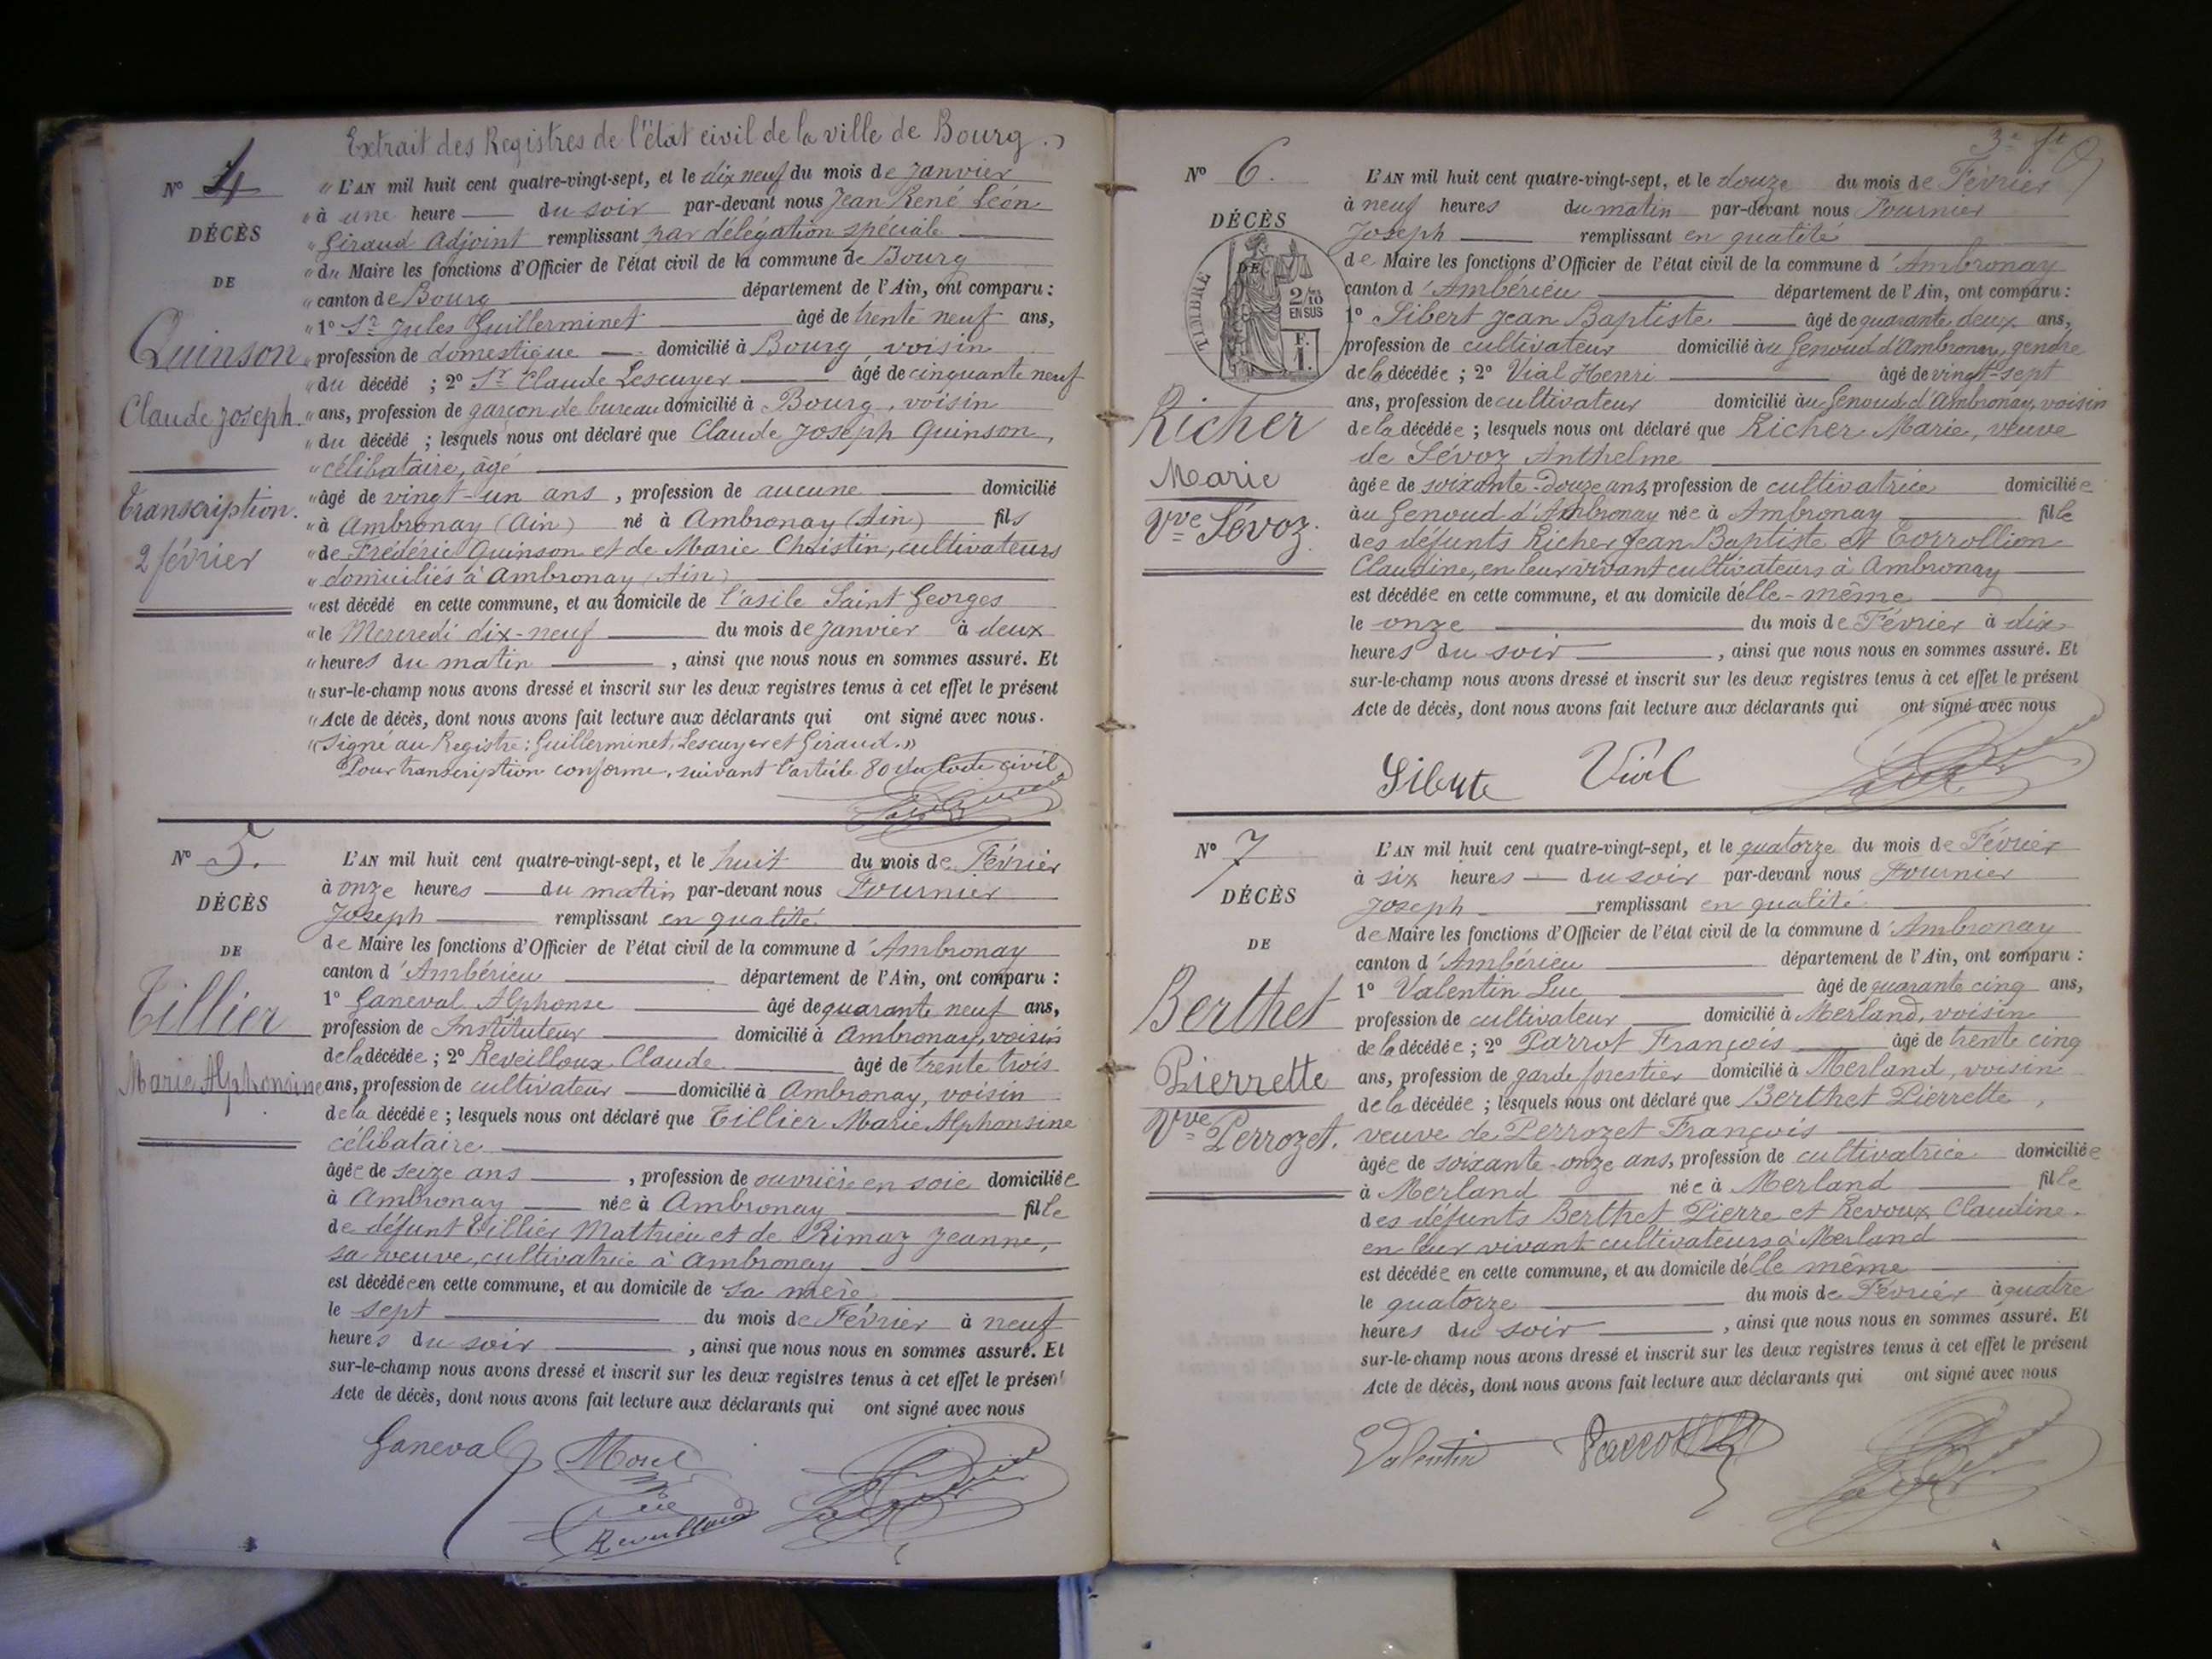 Extrait des Registres de l'état civil de la ville de Bourg.
N° 4
DÉCÈS
DE
Quinson
Claude Joseph.
Transcription.
2 février
" L'AN mil huit cent quatre-vingt-sept, et le dix neuf du mois de Janvier
" à une heure du soir par-devant nous Jean René Léon
" Giraud Adjoint remplissant par délégation spéciale
" du Maire les fonctions d'Officier de l'état civil de la commune de Bourg
" canton de Bourg département de l'Ain, ont comparu :
" 1° Sr Jules Guillerminet âgé de trente neuf ans,
" profession de domestique domicilié à Bourg, voisin
" du décédé ; 2° Sr Claude Lescuyer âgé de cinquante neuf
" ans, profession de garçon de bureau domicilié à Bourg, voisin
" du décédé ; lesquels nous ont déclaré que Claude Joseph Quinson,
" célibataire, âgé
" âgé de vingt-un ans, profession de aucune domicilié
" à Ambronay (Ain) né à Ambronay (Ain) fils
" de Frédéric Quinson et de Marie Christin, cultivateurs
" domiciliés à Ambronay (Ain)
" est décédé en cette commune, et au domicile de l'asile Saint Georges
" le Mercredi dix-neuf du mois de Janvier à deux
" heures du matin, ainsi que nous nous en sommes assuré. Et
" sur-le-champ nous avons dressé et inscrit sur les deux registres tenus à cet effet le présent
" Acte de décès, dont nous avons fait lecture aux déclarants qui ont signé avec nous.
" Signé au Registre : Guillerminet, Lescuyer et Giraud. "
Pour transcription conforme, suivant l'article 80 du Code civil
N° 5.
DÉCÈS
DE
Tillier
Marie Alphonsine
L'AN mil huit cent quatre-vingt-sept, et le huit du mois de Février
à onze heures du matin par-devant nous Fournier
Joseph remplissant en qualité
de Maire les fonctions d'Officier de l'état civil de la commune d'Ambronay
canton d'Ambérieu département de l'Ain, ont comparu :
1° Ganeval Alphonse âgé de quarante neuf ans,
profession de Instituteur domicilié à Ambronay, voisin
de la décédée ; 2° Reveilloux Claude âgé de trente trois
ans, profession de cultivateur domicilié à Ambronay, voisin
de la décédée ; lesquels nous ont déclaré que Tillier Marie Alphonsine
célibataire
âgée de seize ans, profession de ouvrière en soie domiciliée
à Ambronay née à Ambronay fille
de défunt Tillier Matthieu et de Rimaz Jeanne,
sa veuve, cultivatrice à Ambronay
est décédée en cette commune, et au domicile de sa mère
le sept du mois de Février à neuf
heures du soir, ainsi que nous nous en sommes assuré. Et
sur-le-champ nous avons dressé et inscrit sur les deux registres tenus à cet effet le présent
Acte de décès, dont nous avons fait lecture aux déclarants qui ont signé avec nous
Ganeval Morel
Reveilloux
3e ft
N° 6.
DÉCÈS
DE
TIMBRE
2/10
EN SUS
F.
1.
Richer
Marie
Vve Sévoz.
L'AN mil huit cent quatre-vingt-sept, et le douze du mois de Février
à neuf heures du matin par-devant nous Fournier
Joseph remplissant en qualité
de Maire les fonctions d'Officier de l'état civil de la commune d'Ambronay
canton d'Ambérieu département de l'Ain, ont comparu :
1° Sibert Jean Baptiste âgé de quarante deux ans,
profession de cultivateur domicilié au Genoud d'Ambronay, gendre
de la décédée ; 2° Vial Henri âgé de vingt-sept
ans, profession de cultivateur domicilié au Genoud d'Ambronay, voisin
de la décédée ; lesquels nous ont déclaré que Richer Marie, veuve
de Sévoz Anthelme
âgée de soixante-douze ans, profession de cultivatrice domiciliée
au Genoud d'Ambronay née à Ambronay fille
des défunts Richer Jean Baptiste et Corrollion
Claudine, en leur vivant cultivateurs à Ambronay
est décédée en cette commune, et au domicile d'elle-même
le onze du mois de Février à dix
heures du soir, ainsi que nous nous en sommes assuré. Et
sur-le-champ nous avons dressé et inscrit sur les deux registres tenus à cet effet le présent
Acte de décès, dont nous avons fait lecture aux déclarants qui ont signé avec nous
Vial
N° 7
DÉCÈS
DE
Berthet
Pierrette
Vve Perrozet.
L'AN mil huit cent quatre-vingt-sept, et le quatorze du mois de Février
à six heures du soir par-devant nous Fournier
Joseph remplissant en qualité
de Maire les fonctions d'Officier de l'état civil de la commune d'Ambronay
canton d'Ambérieu département de l'Ain, ont comparu :
1° Valentin Luc âgé de quarante cinq ans,
profession de cultivateur domicilié à Merland, voisin
de la décédée ; 2° Parrot François âgé de trente cinq
ans, profession de garde forestier domicilié à Merland, voisin
de la décédée ; lesquels nous ont déclaré que Berthet Pierrette,
veuve de Perrozet François
âgée de soixante-onze ans, profession de cultivatrice domiciliée
à Merland née à Merland fille
des défunts Berthet Pierre et Revoux Claudine.
en leur vivant cultivateurs à Merland
est décédée en cette commune, et au domicile d'elle même
le quatorze du mois de Février à quatre
heures du soir, ainsi que nous nous en sommes assuré. Et
sur-le-champ nous avons dressé et inscrit sur les deux registres tenus à cet effet le présent
Acte de décès, dont nous avons fait lecture aux déclarants qui ont signé avec nous
Valentin Parrot